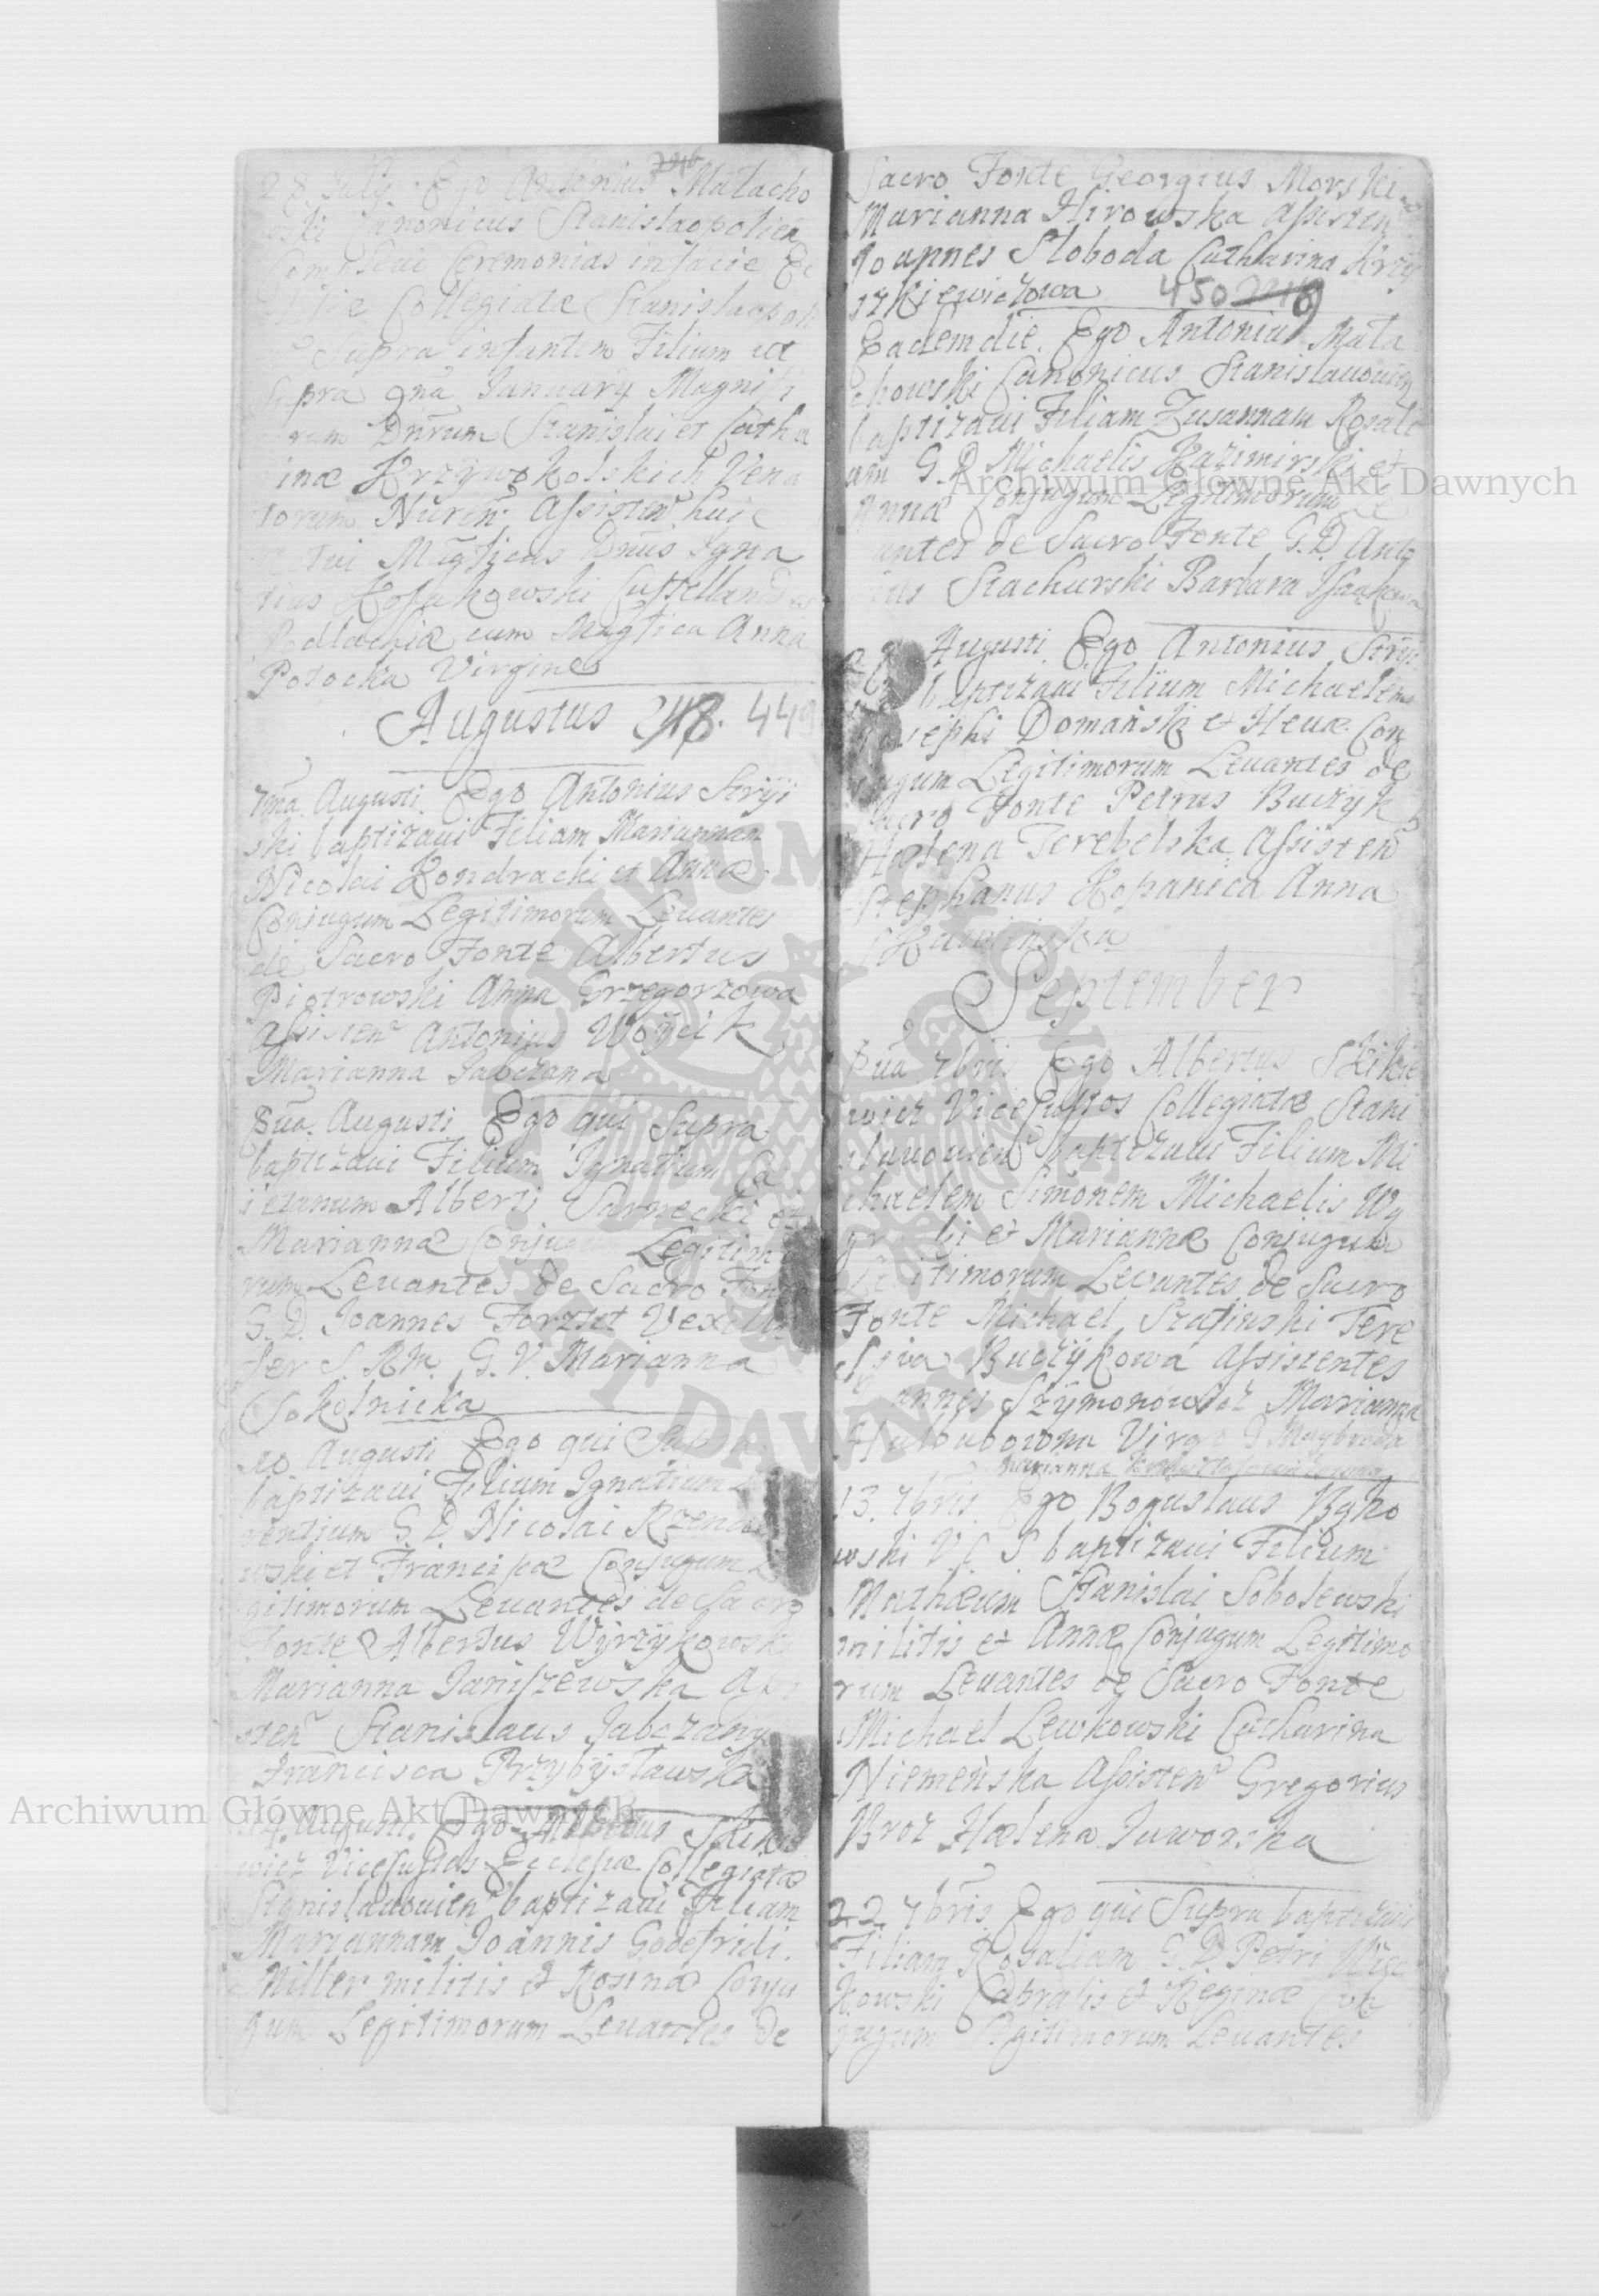 28 July. Ego Antonius Małacho
wski Canonicus Stanislaopolien
Complevi Ceremonias in facie Ec
Collegiatæ Stanislaopol
Supra infantem Filium ut
Supra 9na January Magnifi
corum Dnrum Stanislai et Catha
rinæ Krzywokolskich Vena
torum Nuren. Assisten huic
Actui Magficus Dnus Igna
tius Kossakowski Castellanides
Podlachiæ cum Magfica Anna
Potocka Virgine
Augustus 248. 449
7ma Augusti. Ego Antonius Stryi
ski baptizavi Filiam Mariannam
Nicolai Kondracki et Annæ
Conjugum Legitimorum Levantes
de Sacro Fonte Albertus
Piotrowski Anna Grzegorzowa
Assisten Antonius Woycik
Marianna Jabczana
8va Augusti Ego qui Supra
baptizavi Filium Ignatium Ca
jetanum Alberti Sarnecki et
Mariannæ Conjugum Legitimo
rum Levantes de Sacro Fonte
G. D. Joannes Forztet Vexilli
fer S. R M. G. V. Marianna
Sokolnicka
10 Augusti Ego qui Supra
baptizavi Filium Ignatium
ventium G. D. Nicolai
wski et Franciscæ Conjugum Le
gitimorum Levantes de Sacro
Fonte Albertus Wyrzykowski
Marianna Janiszewska Assi
sten Stanislaus Jabczany
Francisca Przybysławska
14. Augusti. Ego Albertus Skikie
wicz ViceCustos Ecclesiæ Collegiatæ
Stanislavovien baptizavi Filiam
Mariannam Joannis Godefridi
Miller militis et Rosinæ Conju
gum Legitimorum Levantes de
Sacro Fonte Georgius Morski
Marianna Hirowska Assisten
Joannes Słoboda Catharina Krzy
szkiewiczowa 450
Eadem die. Ego Antonius Mała
chowski Canonicus Stanislavovien
baptizavi Filiam Zusannam Rosali
am G. D. Michaelis Kazimirski et
Annæ Conjugum Legitimorum Le
vantes de Sacro Fonte G. D. Anto
nius Stachurski Barbara
Augusti Ego Antonius Stryi
baptizavi Filium Michaelem
Josephi Domański et Hevæ Con
jugum Legitimorum Levantes de
Sacro Fonte Petrus Buczyk
Helena Terebelska Assisten
Stephanus Kopanica Anna
September
8va 7bris Ego Albertus Skikie
wicz ViceCustos Collegiatæ Stani
slavovien baptizavi Filium Mi
chaelem Simonem Michaelis Wy
et Mariannæ Conjugum
Legitimorum Levantes de Sacro
Fonte Michael Stasinski Tere
ssia Buczykowa Assistentes
Joannes Szymonowicz Marianna
Virgo
Marianna
13. 7bris. Ego Boguslaus Byko
wski V. C. S. baptizavi Filium
Mathæum Stanislai Sobolewski
militis et Annæ Conjugum Legitimo
rum Levantes de Sacro Fonte
Michael Lewkowski Catharina
Niemeńska Assisten Gregorius
Broz Hælena Jaworska
22 7bris. Ego qui Supra baptizavi
Filiam Rosaliam G. D. Petri
kowski Capralis et Reginæ Con
jugum Legitimorum Levantes
Archiwum Główne Akt Dawnych
Archiwum Główne Akt Dawnych
ARCHIWUM GŁÓWNE AKT DAWNYCH